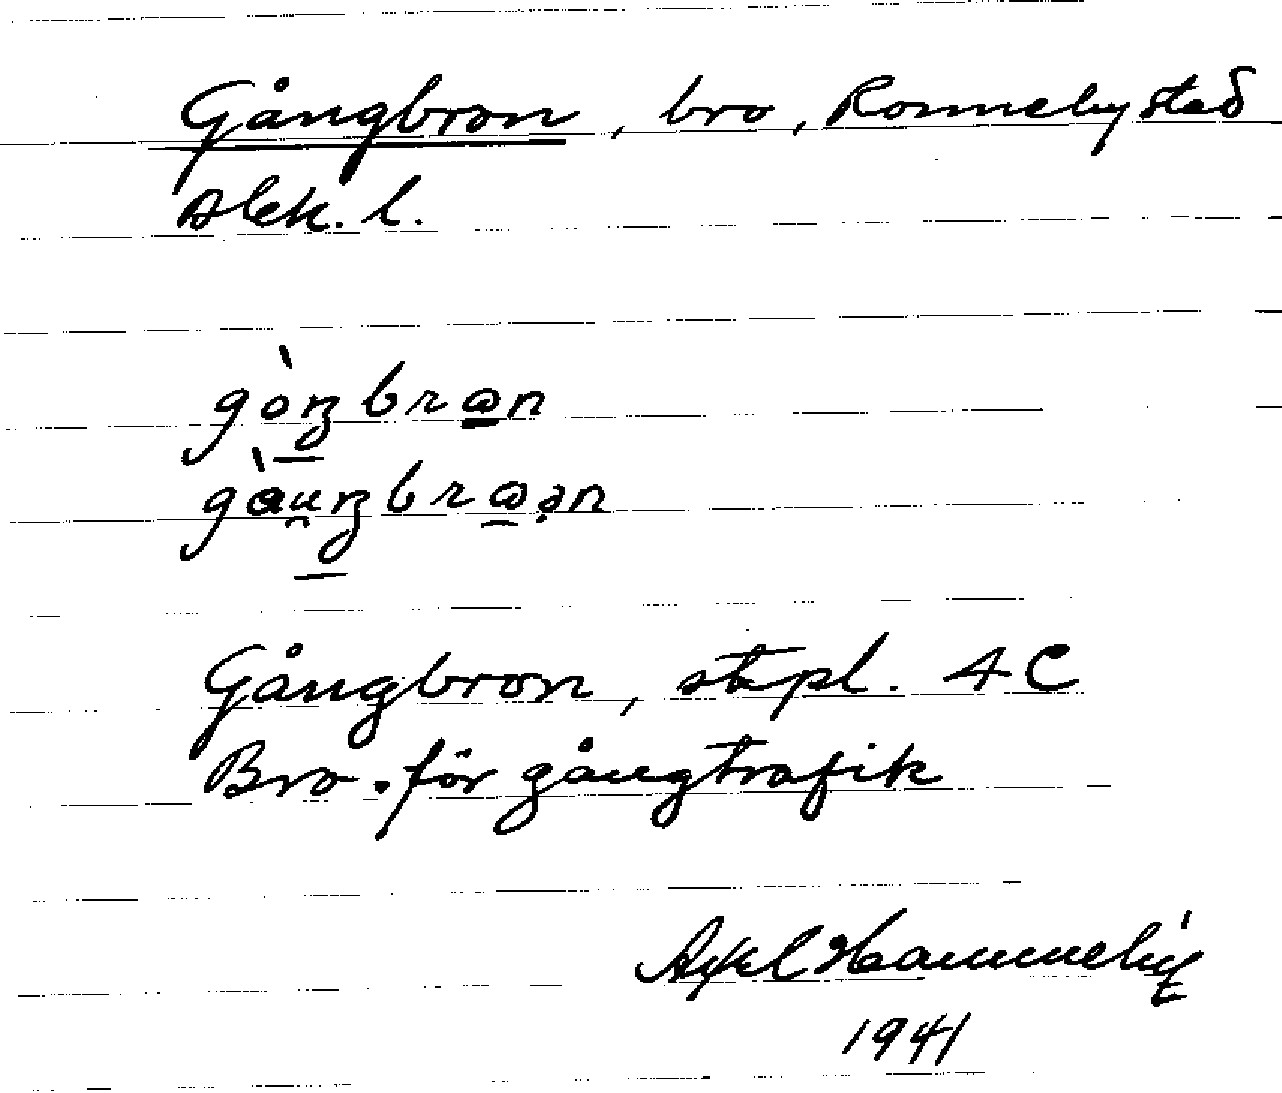 Gångbron, bro, Ronneby stad
Blek. l.
gòŋbrɷn
gàu̯ŋbrɷən
Gångbron, stpl. 4 C
Bro för gångtrafik
Axel
1941